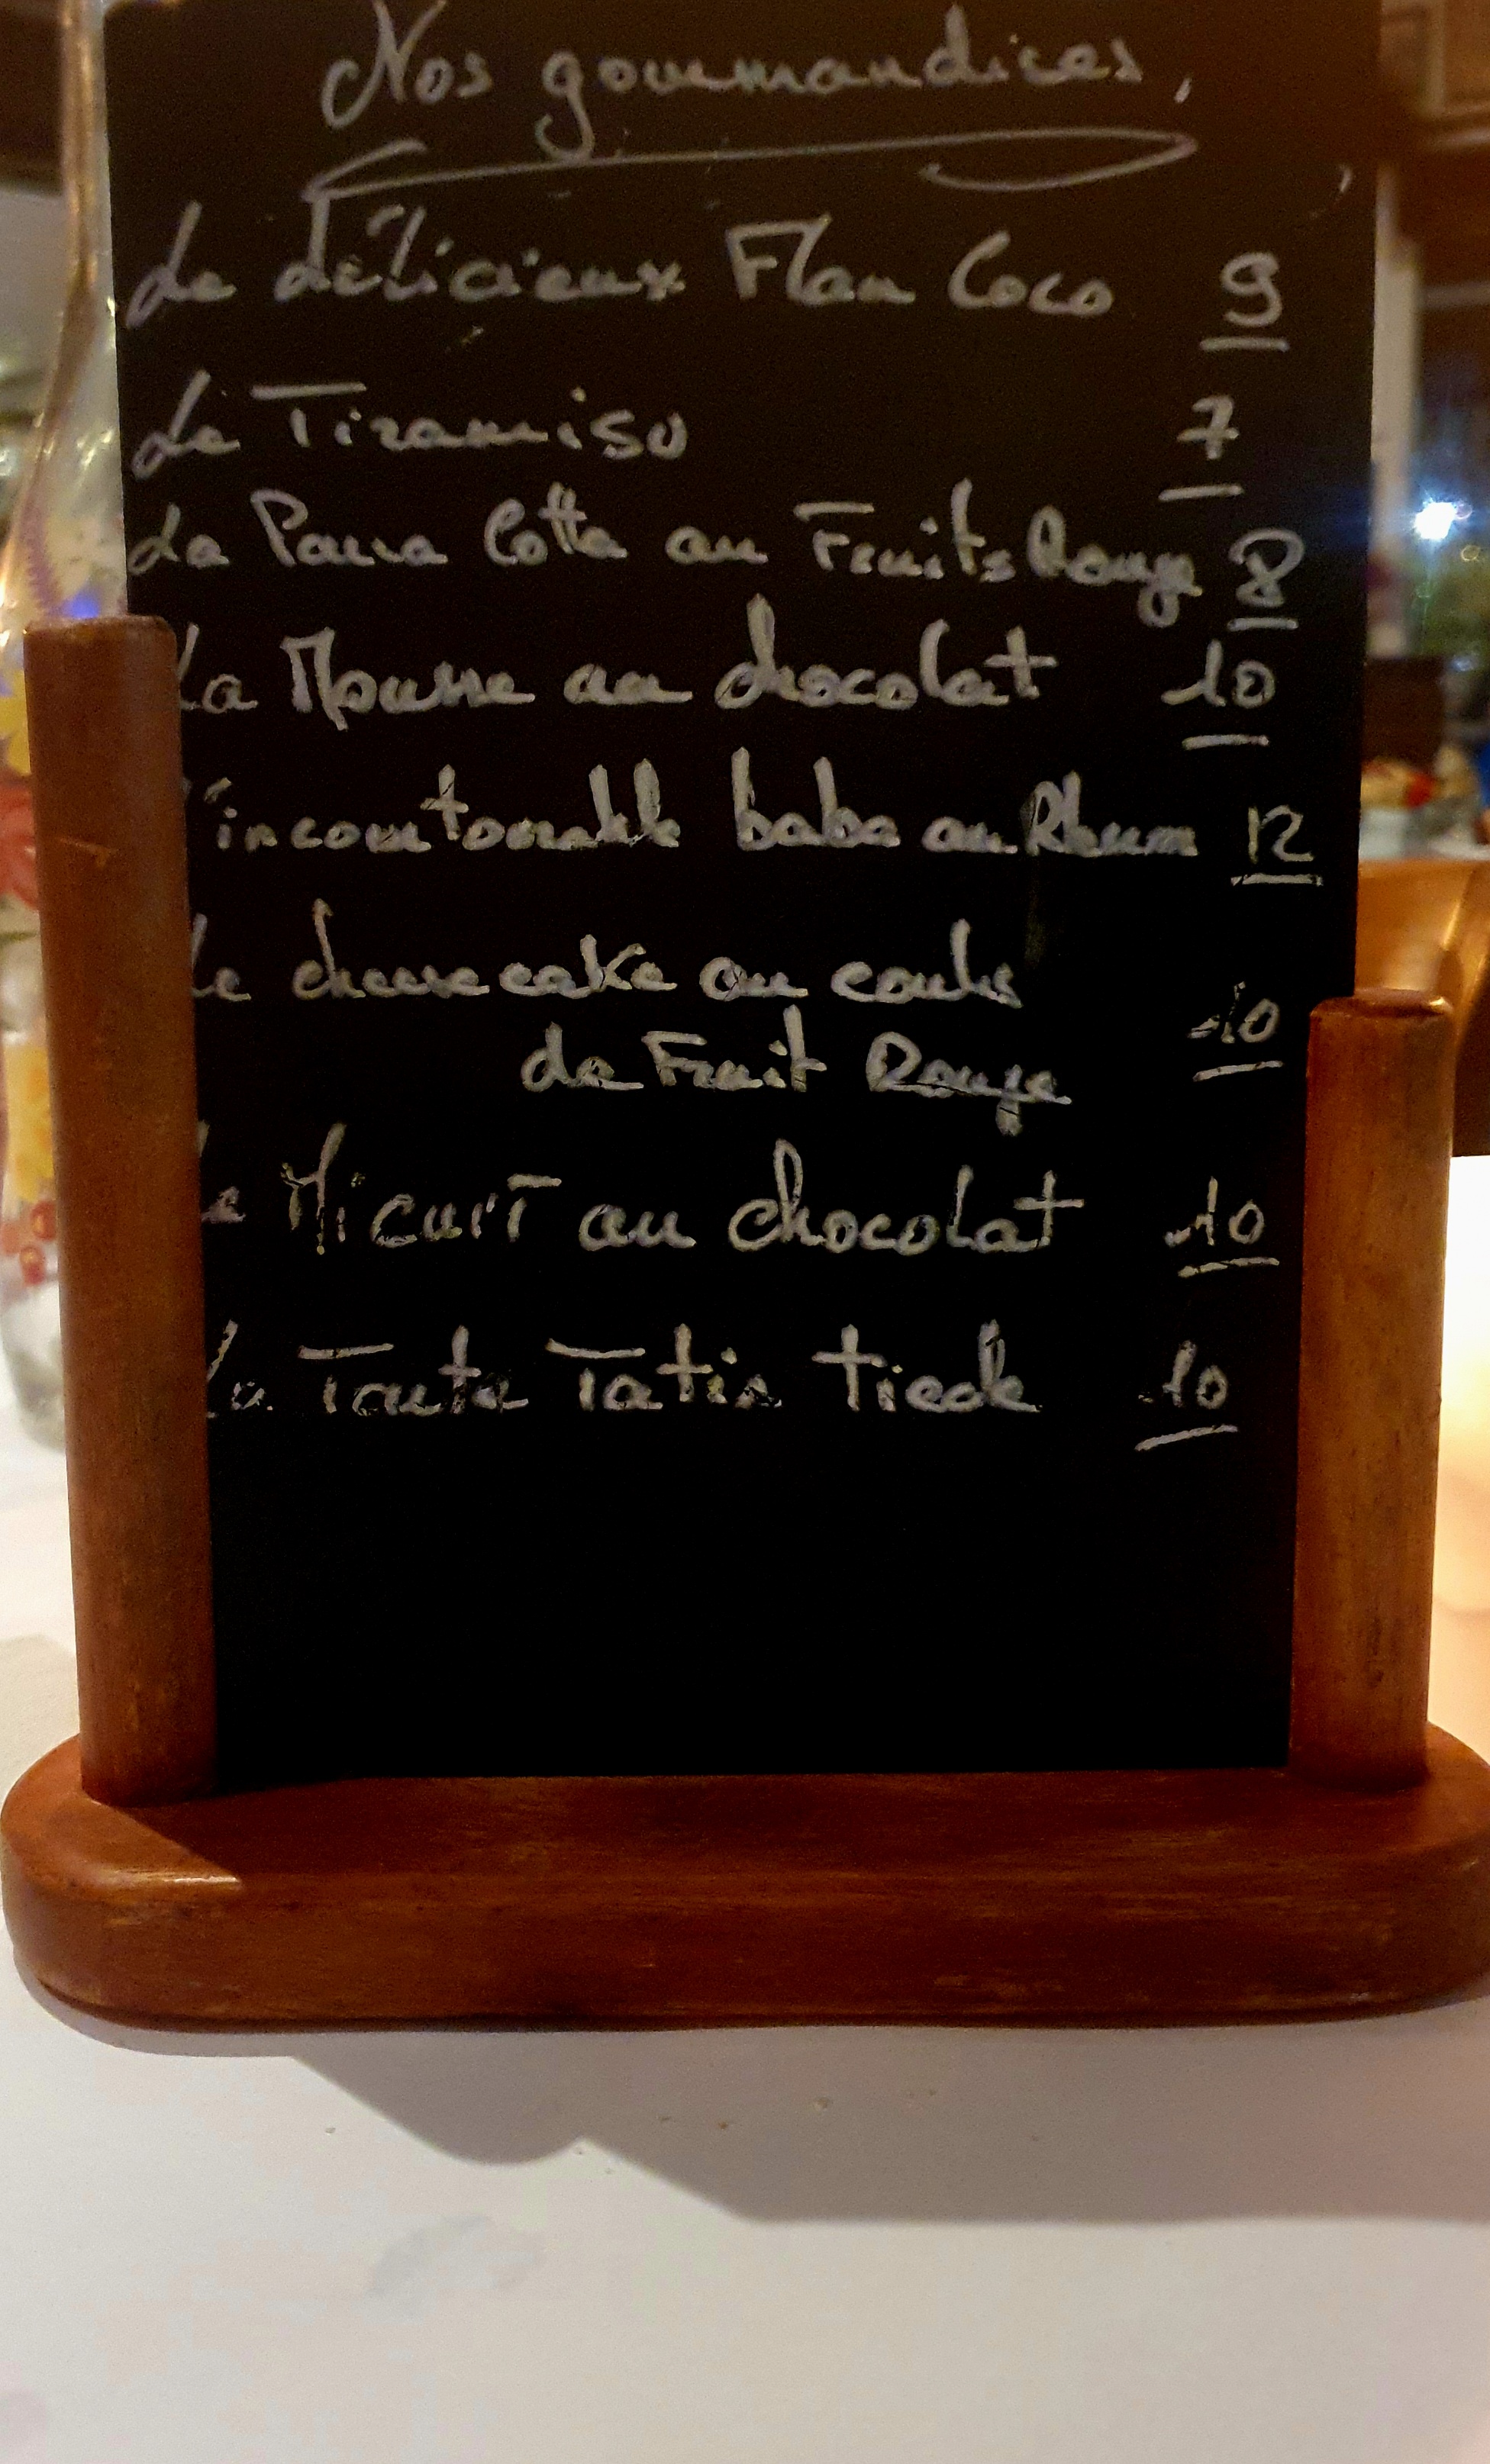 Nos gourmandises
Le délicieux Flan Coco 9
Le Tiramisu 7
La Panna Cotta au Fruits Rouge 8
La Mousse au chocolat 10
L'incontournable baba au Rhum 12
Le cheesecake au coulis
de Fruit Rouge 10
Le Micuit au chocolat 10
La Tarte Tatin tiede 10